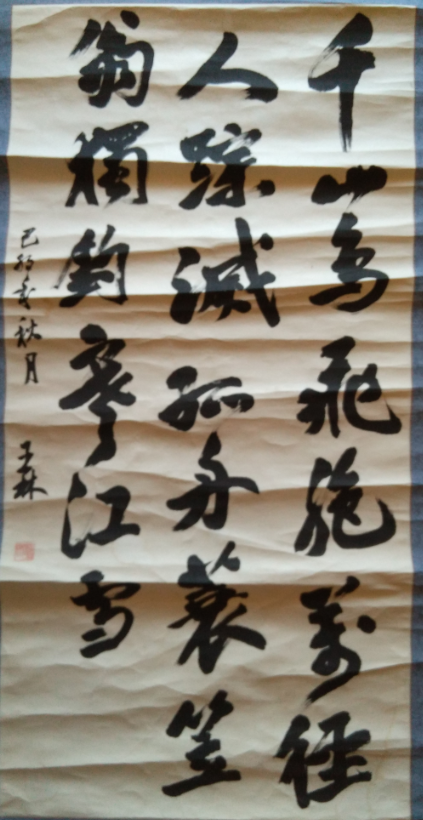 千山鳥飛絶萬徑
人踪滅孤舟蓑笠
翁獨釣寒江雪
己卯歲秋月
王林